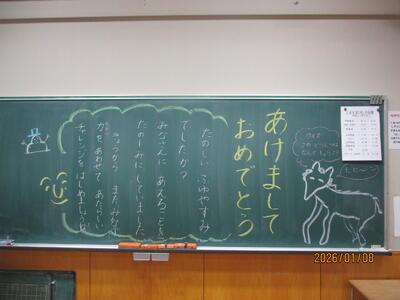 あけまして
おめでとう
たのしい ふゆやすみ
でしたか？
みなさんに あえることを
たのしみにしていました。
きょうから また みんなで
力をあわせて あたらしい
チャレンジを はじめましょう
クイズ
この どうぶつは
なんでしょう？
2026/01/08